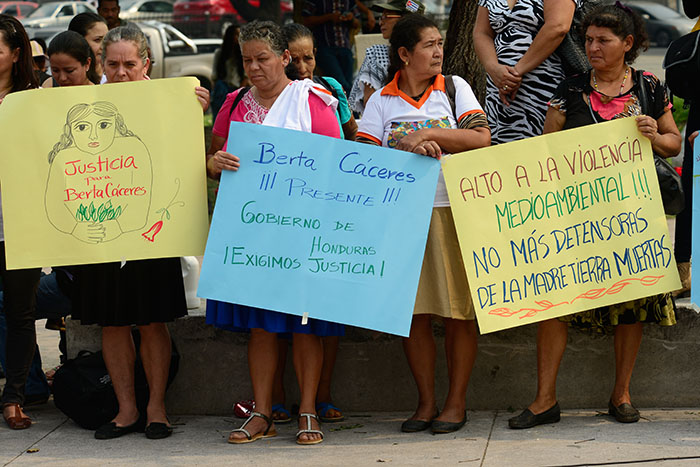 Justicia
para
Berta Cáceres
Berta Cáceres
!!! Presente !!!
Gobierno de
Honduras
¡Exigimos Justicia!
Alto a la violencia
medioambiental!!!
No más defensoras
de la madre tierra muertas